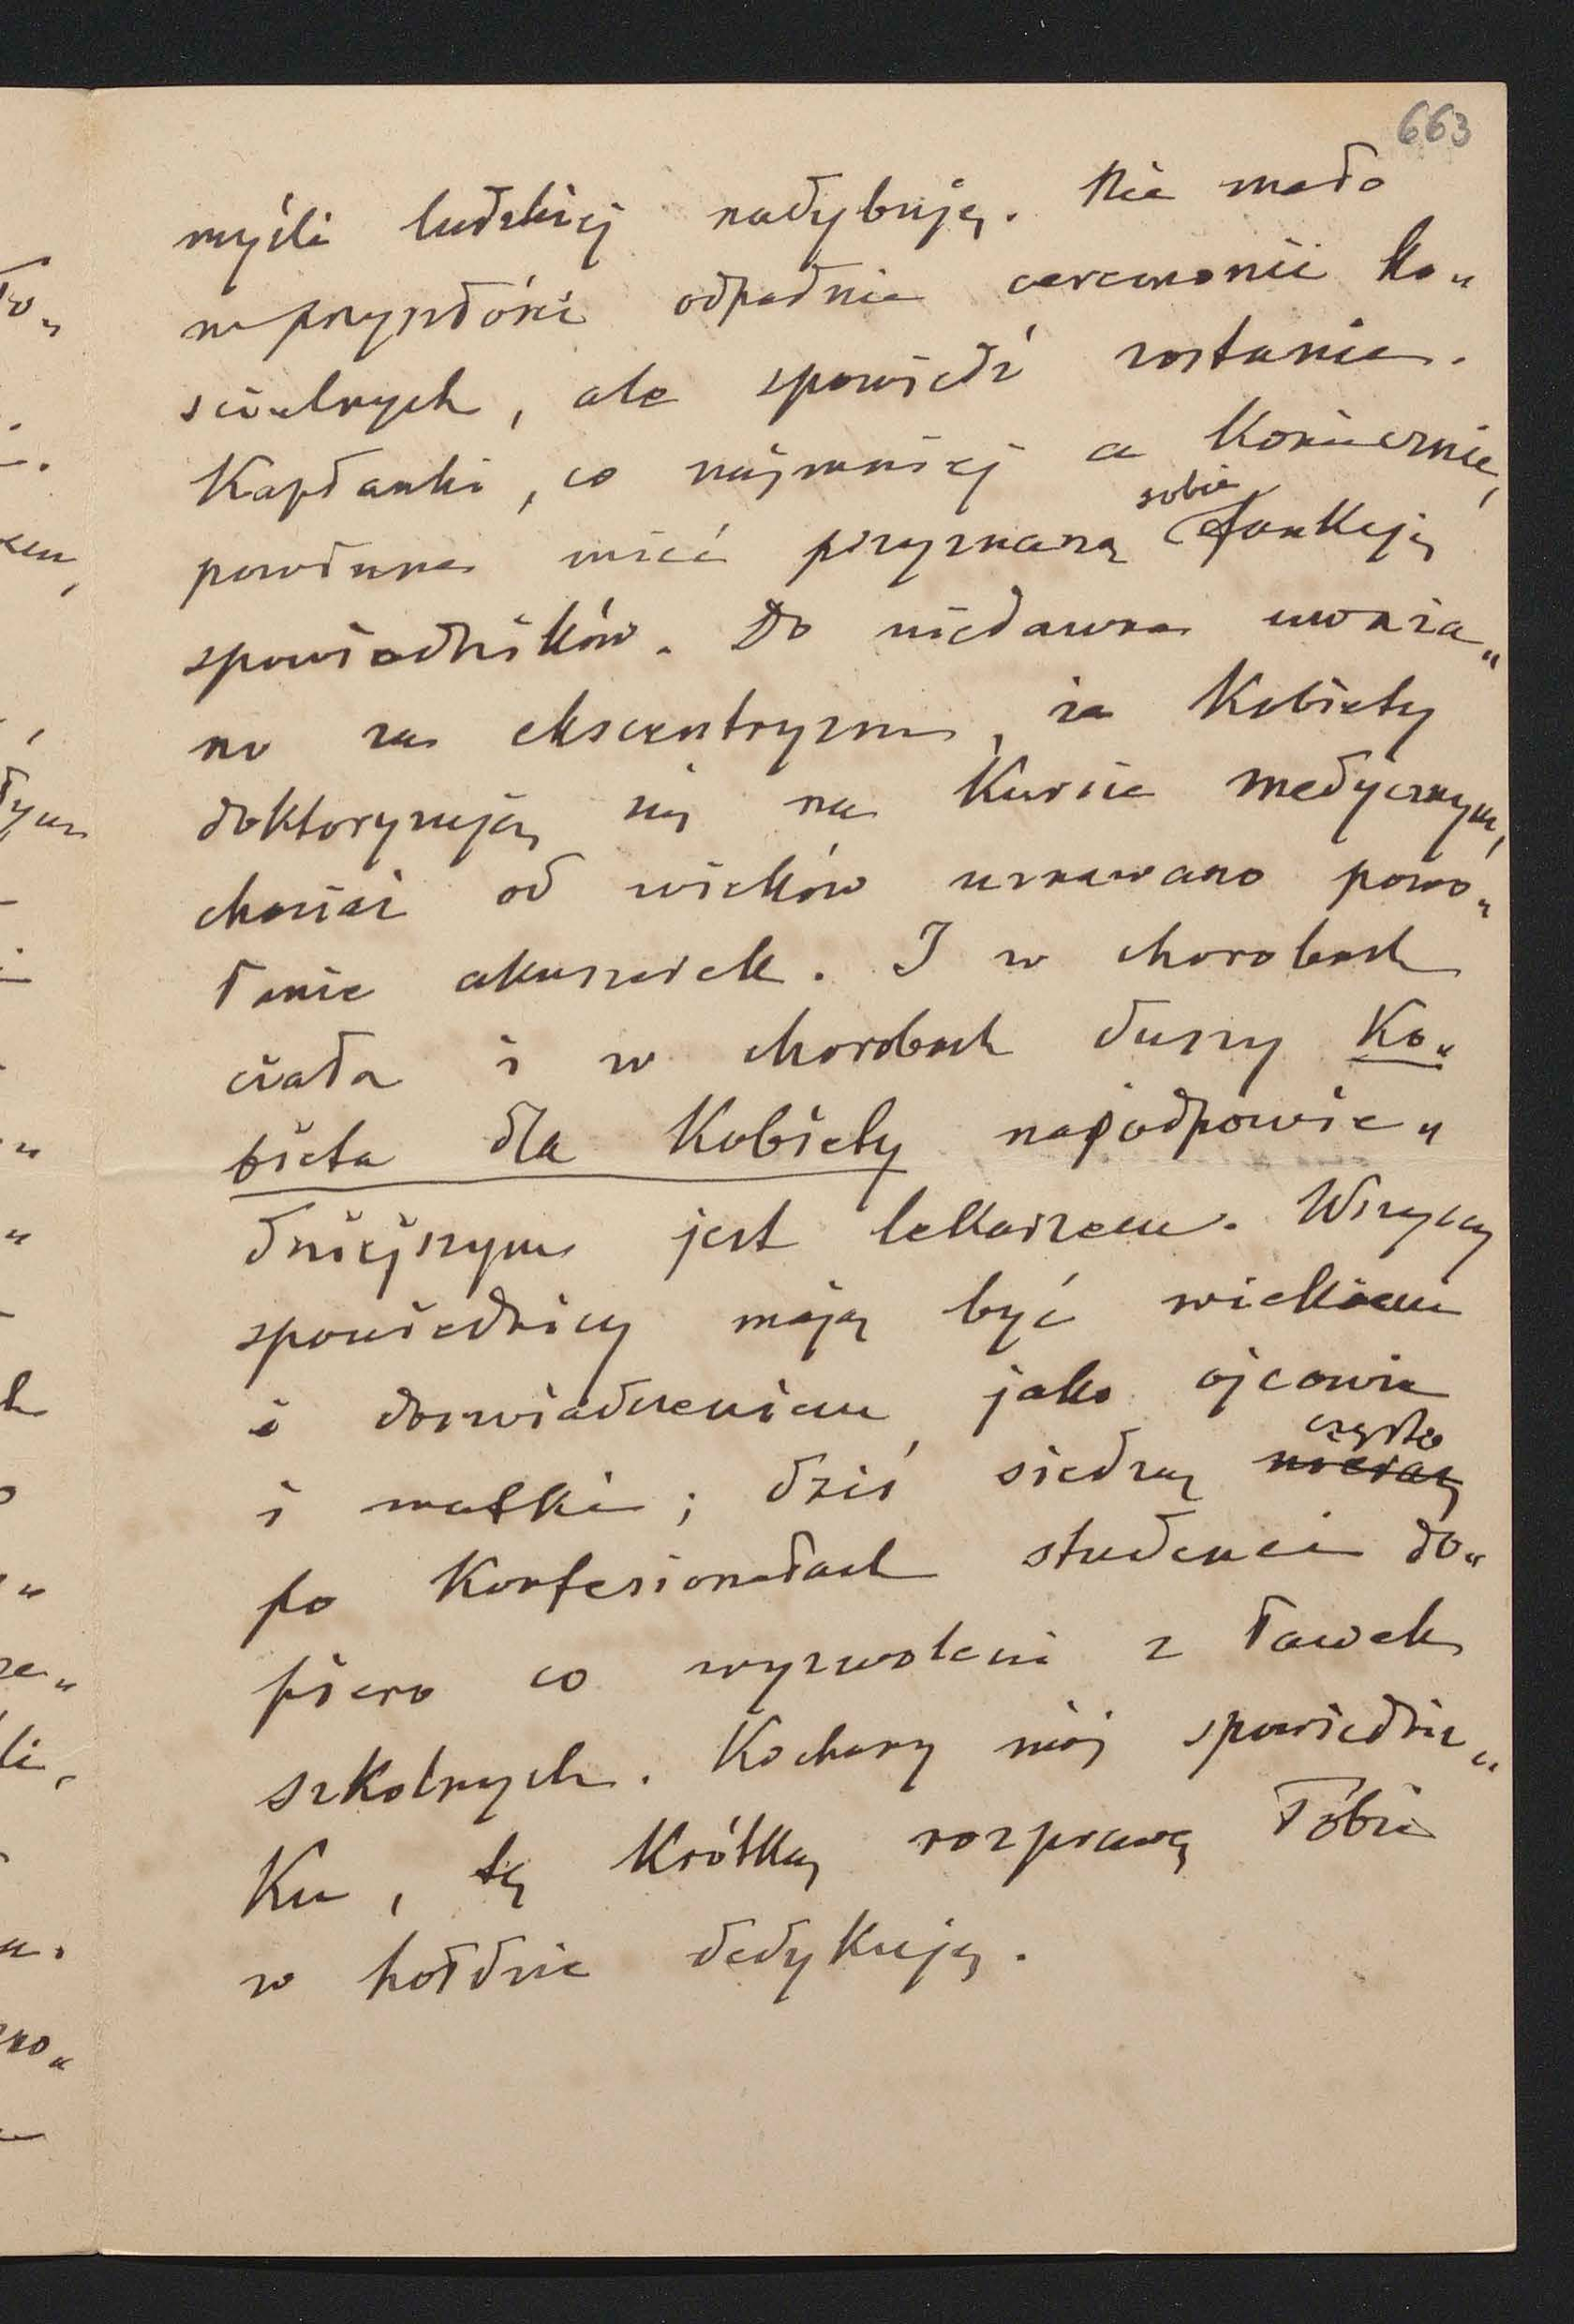 663
myśli ludzkiej nadybuję. Nie mało
w przyszłości odpadnie ceremonii ko„
ścielnych, ale spowiedź zostanie.
Kapłanki, co najmniej a koniecznie,
powinne mieć przyznaną sobie funkcję
spowiedników. Do niedawna uważa„
no za ekscentryzm, że Kobiety
doktoryzują się na Kursie medycznym,
chociaż od wieków uznawano powo„
łanie akuszerek. I w chorobach
ciała i w chorobach duszy Ko„
bieta dla Kobiety najodpowie„
dniejszym jest lekarzem. Wszyscy
spowiednicy mają być wiekiem
i doświadczeniem jako ojcowie
i matki; dziś siedzą często
po Konfesionałach studenci do„
piero co wyzwoleni z ławek
szkolnych. Kochany mój spowiedni„
Ku, tę Krótką rozprawę Tobie
w hołdzie dedykuję.